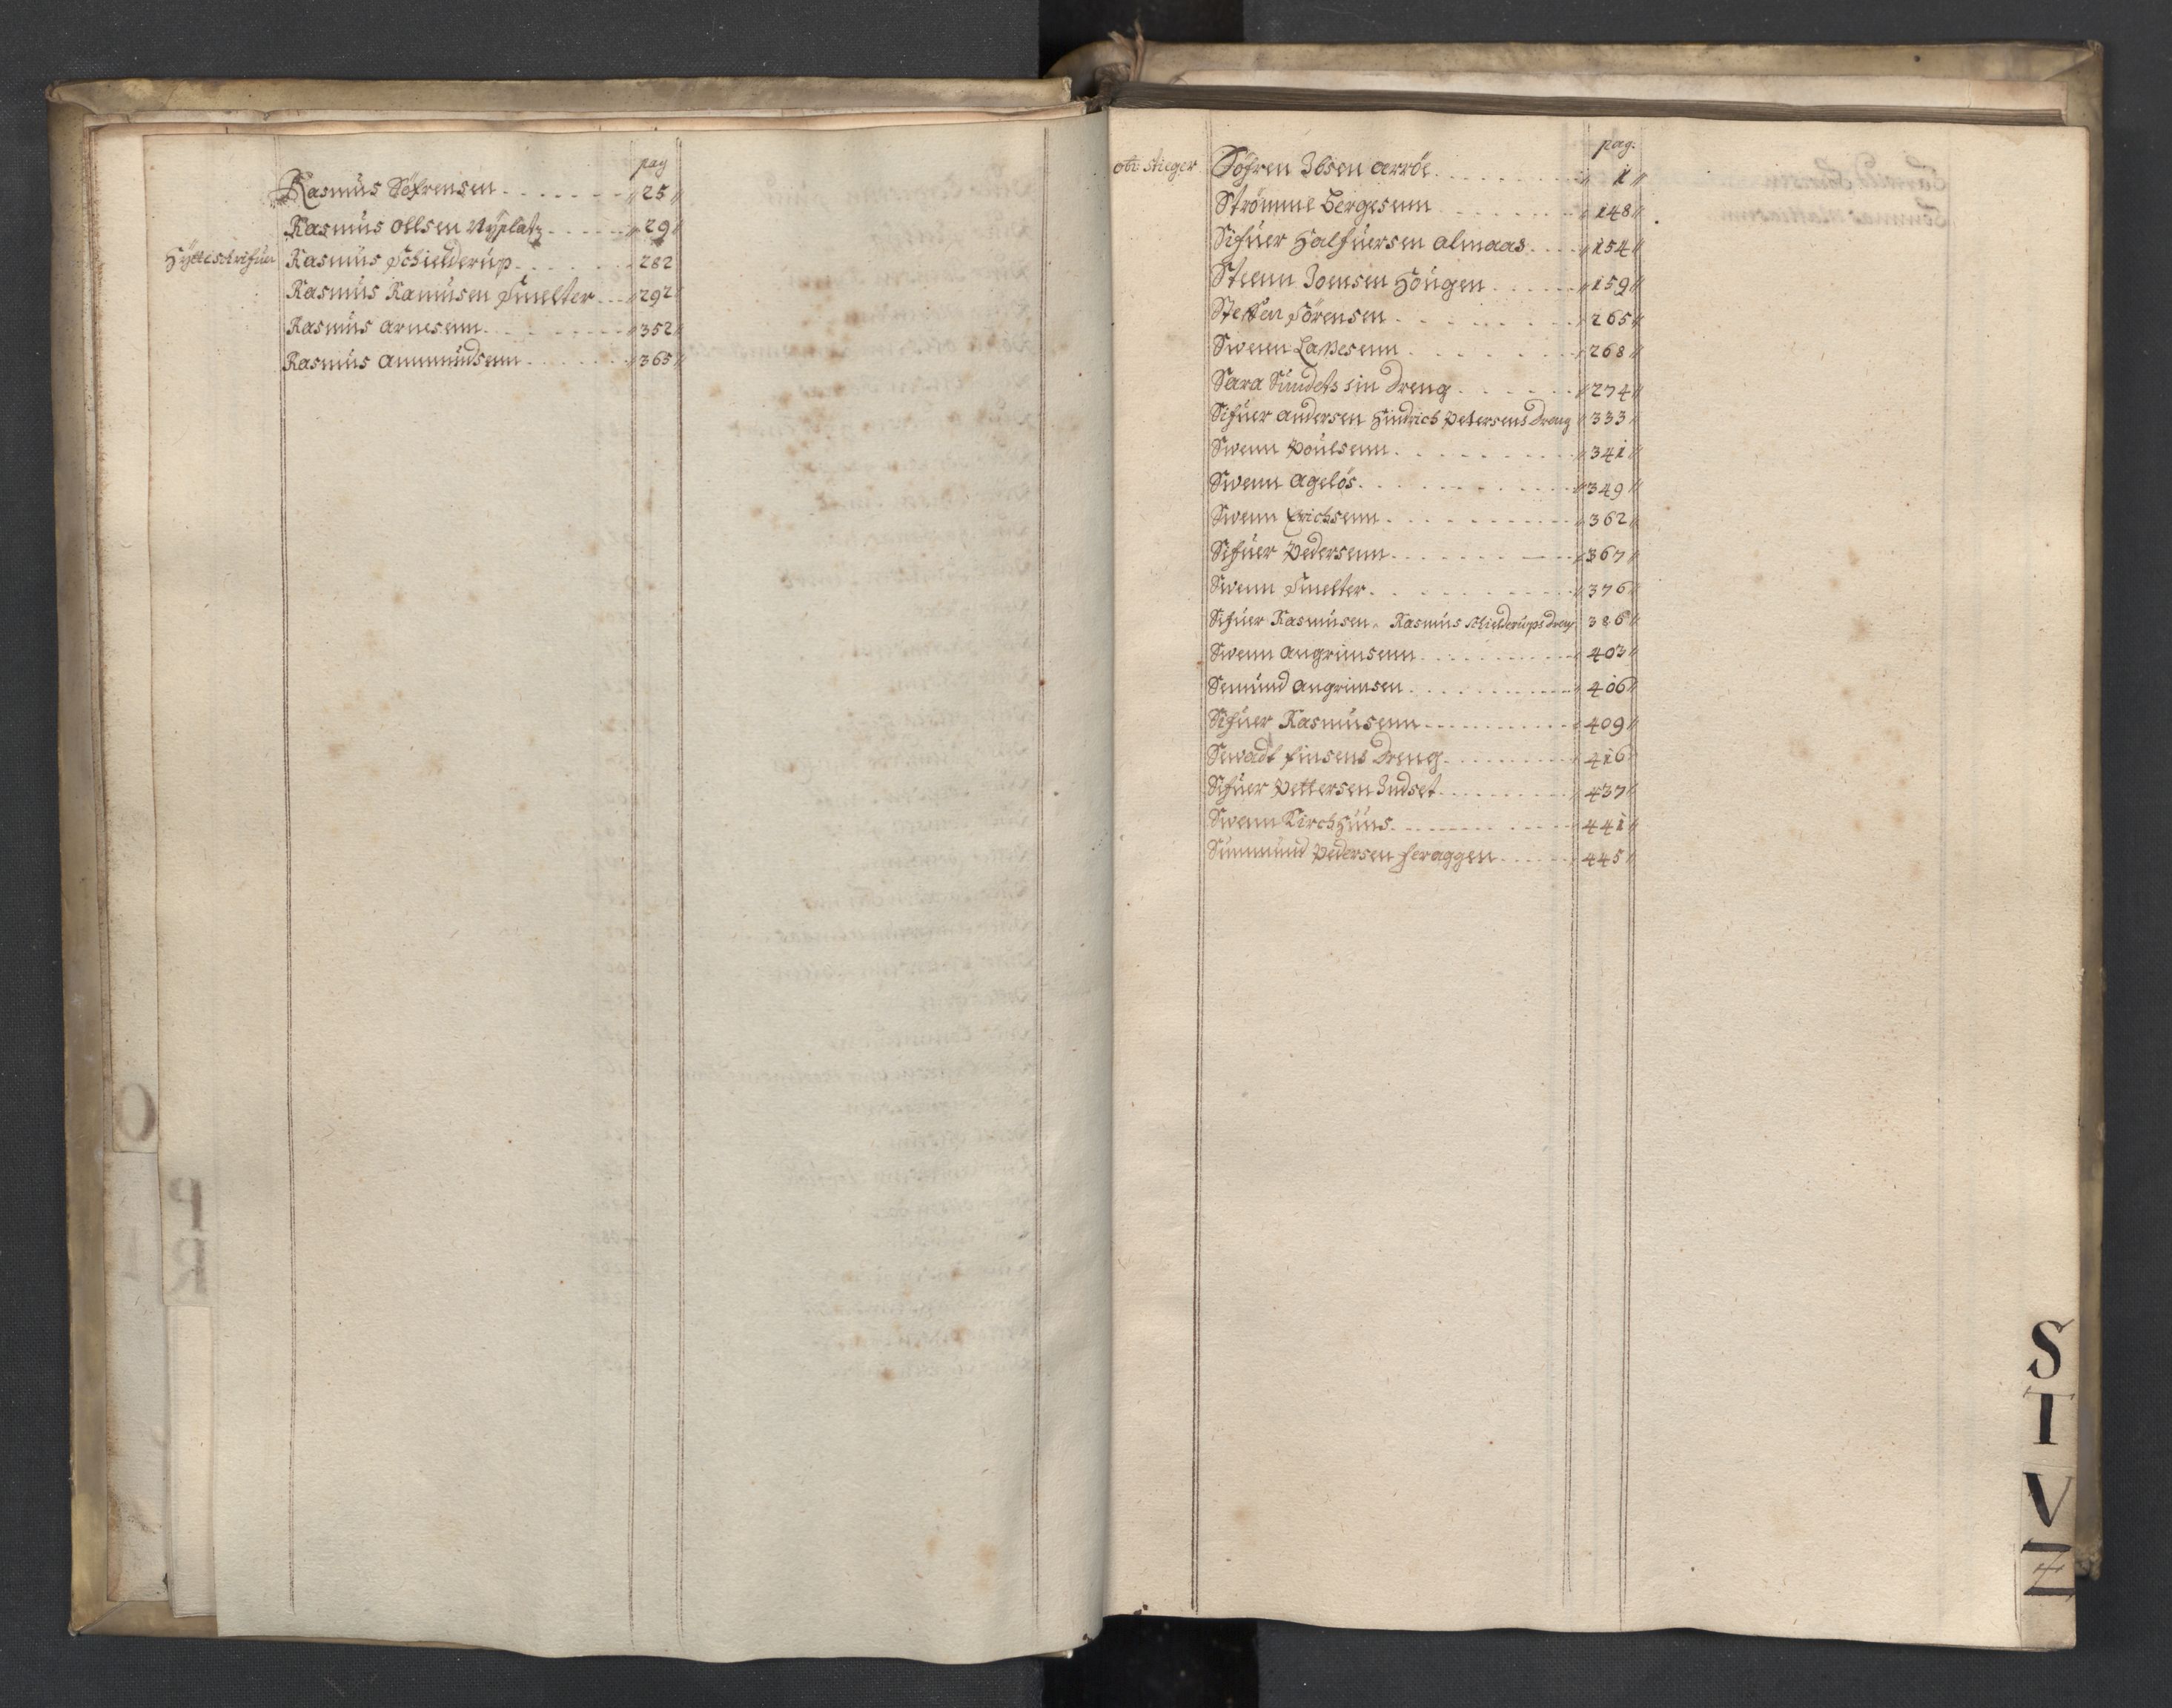 pag
Rasmus Söfrensen - - - - - - - // 25 //
Rasmus Ollsen Nÿplatz - - - - - // 29 //
Hÿtteschrifuer Rasmus Schielderup - - - - - - 282
Rasmus Ramusen Smelter - - - // 292 //
Rasmus Arnesenn - - - - - - - - // 352 //
Rasmus Ammundsenn - - - - - - // 365 //
O
P
R
pag.
Stieger Söfren Ibsen Arröe - - - - - - - - // 1 //
Strömme Bergesenn - - - - - - - // 148 //
Sifuer Halfuersen Almaas - - - // 154 //
Steenn Joensen Hougen - - - - - // 159 //
Steffen Sörensen - - - - - - - 265 //
Swenn Lassesenn - - - - - - - 268 //
Sara Sundets sin Dreng - - - - - - // 274 //
Sifuer Andersen Hindrich Petersens Dreng // 333 //
Swenn Poulsenn - - - - - - - - - // 341 //
Swenn Ageløs - - - - - - - - - - // 349 //
Swenn Erichsenn - - - - - - - - - // 362 //
Sifuer Pedersenn - - - - - - - - // 367 //
Swenn Smelter - - - - - - - - - // 376 //
Sifuer Rasmusen - Rasmus Schielderups Dreng 386 //
Swenn Angrimsenn - - - - - - - - // 403 //
Semund Angrimsen - - - - - - - - // 406 //
Sifuer Rasmusenn - - - - - - - - // 409 //
Sewadt Finsens Dreng - - - - - - - // 416 //
Sifuer Pettersen Indset - - - - - - // 437 //
Swenn Kirchhuus - - - - - - - - - // 441 //
Summund Pedersen Feraggen - - - - // 445 //
S
T
V
Z